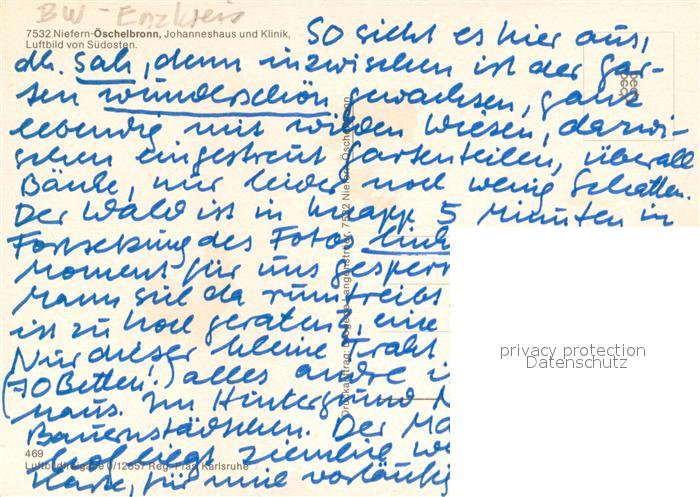 BW - Enzkreis
7532 Niefern-Öschelbronn, Johanneshaus und Klinik,
Luftbild von Südosten.
So sieht es hier aus,
dh. sah, denn inzwischen ist der Gar-
ten wunderschön gewachsen, ganz
lebendig mit wilden Wiesen, dazwi-
schen eingestreut Gartenteilen, überall
Bänke, nur leider noch wenig Schatten.
Der Wald ist in knapp 5 Minuten in
Fortsetzung des Fotos
Moment für uns gesperr
Mann sich da rumtreibt
ist zu hoch geraten, eine
Nur dieser kleine Trakt
(70 Betten!) alles andre i
haus. Im Hintergrund N
Bauernstädtchen. Der Ma
liegt ziemlich we
für mich vorläufig
469
Luftbildfreigabe 0/12857 Reg. Präs. Karlsruhe
7532 Niefern-Öschelbronn
privacy protection
Datenschutz